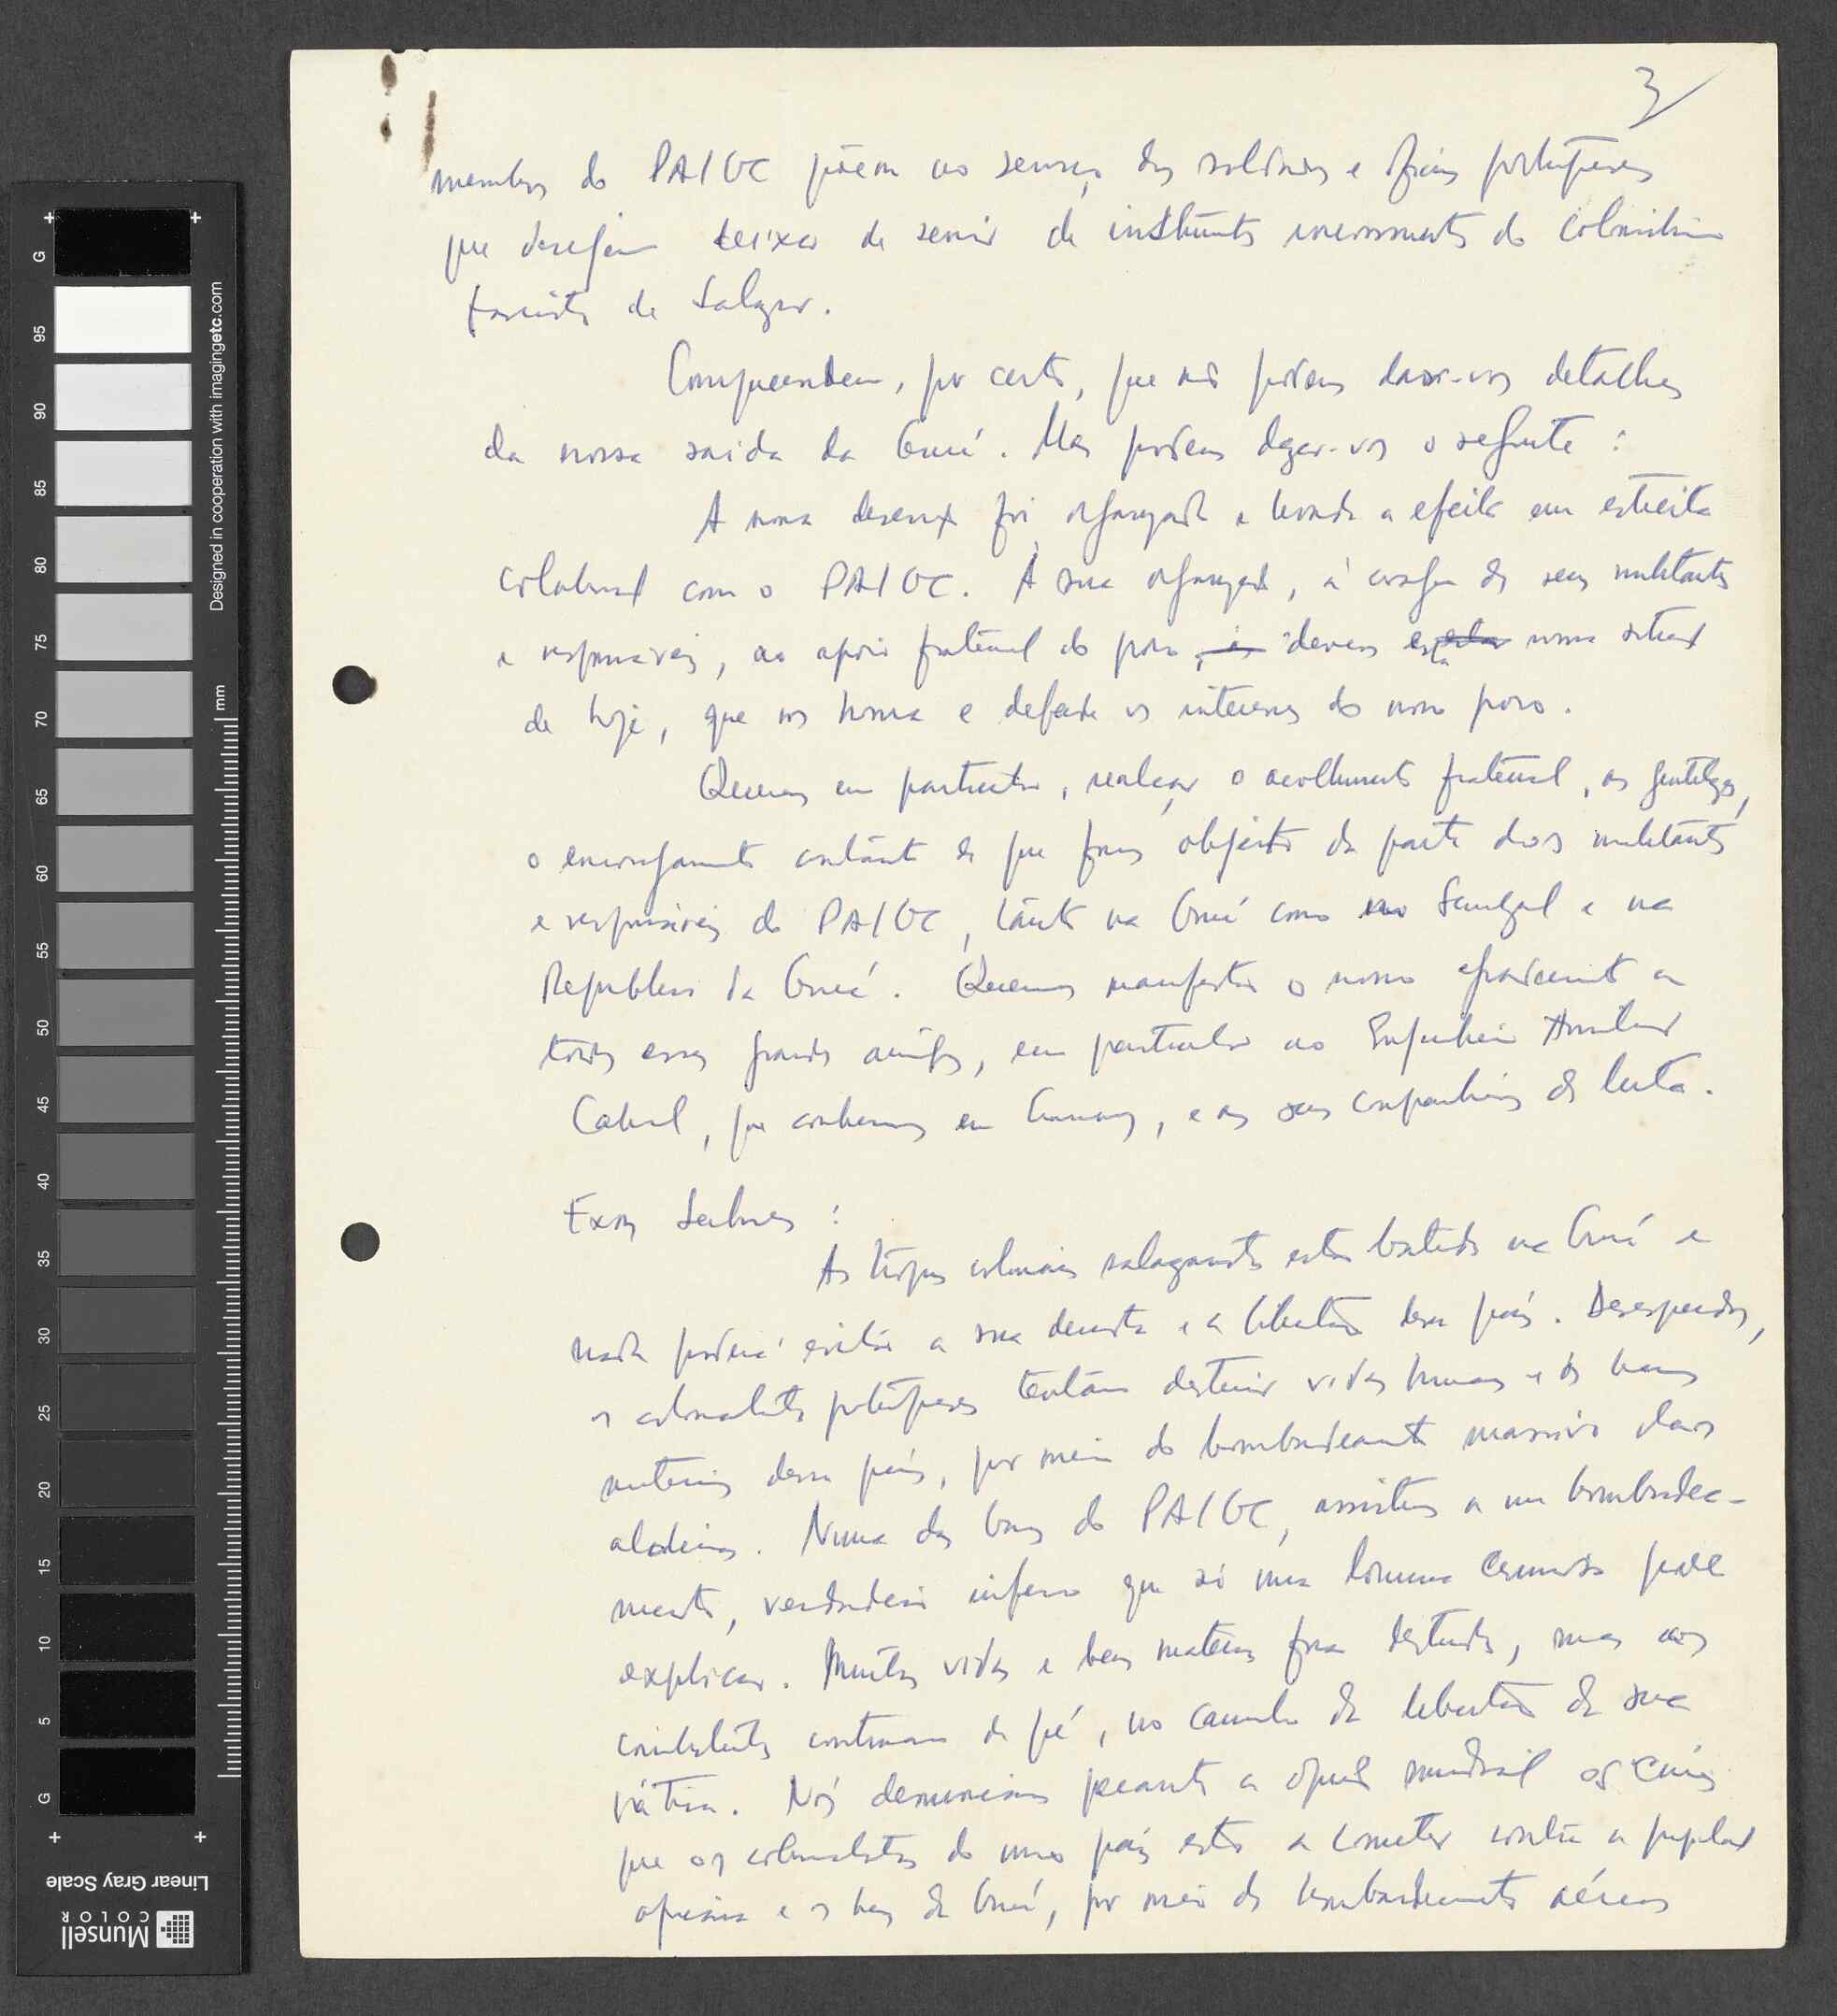 3
membros do PAIGC põem ao serviço dos soldados e oficiais portugueses
que desejam deixar de servir de instrumentos inconscientes do colonialismo
fascista de Salazar.
Compreendem, por certo, que não podemos dar-vos detalhes
da nossa saída da Guiné. Mas podemos dizer-vos o seguinte :
A nossa deserção foi organizada e levada a efeito em estreita
colaboração com o PAIGC. À sua organização, à coragem dos seus militantes
e responsáveis, ao apoio fraternal do povo, devemos esta nossa situação
de hoje, que nos honra e defende os interesses do nosso povo.
Queremos em particular, realçar o acolhimento fraternal, as gentilezas,
o encorajamento constante de que fomos objecto da parte dos militantes
e responsáveis do PAIGC, tanto na Guiné como no Senegal e na
República da Guiné. Queremos manifestar o nosso agradecimento a
todos esses grandes amigos, em particular ao Engenheiro Amilcar
Cabral, que conhecemos em Conakry, e aos seus companheiros de luta.
Exmos Senhores :
As tropas coloniais salazaristas estão batidas na Guiné e
nada poderá evitar a sua derrota e a libertação desse país. Desesperados,
os colonialistas portugueses tentam destruir vidas humanas e os bens
materiais desse país, por meio do bombardeamento massivo das
aldeias. Numa das bases do PAIGC, assistimos a um bombardea-
mento, verdadeiro inferno que só uma loucura criminosa pode
explicar. Muitas vidas e bens materiais foram destruídos, mas os
combatentes continuam de pé, no caminho da libertação da sua
pátria. Nós denunciamos perante a opinião mundial os crimes
que os colonialistas do nosso país estão a cometer contra a população
africana e os bens da Guiné, por meio de bombardeamentos aéreos
G
95
90
85
80
75
70
65
60
55
50
45
40
35
30
25
20
15
10
5
G
mm
Designed in cooperation with imagingetc.com
Linear Gray Scale
Munsell
COLOR